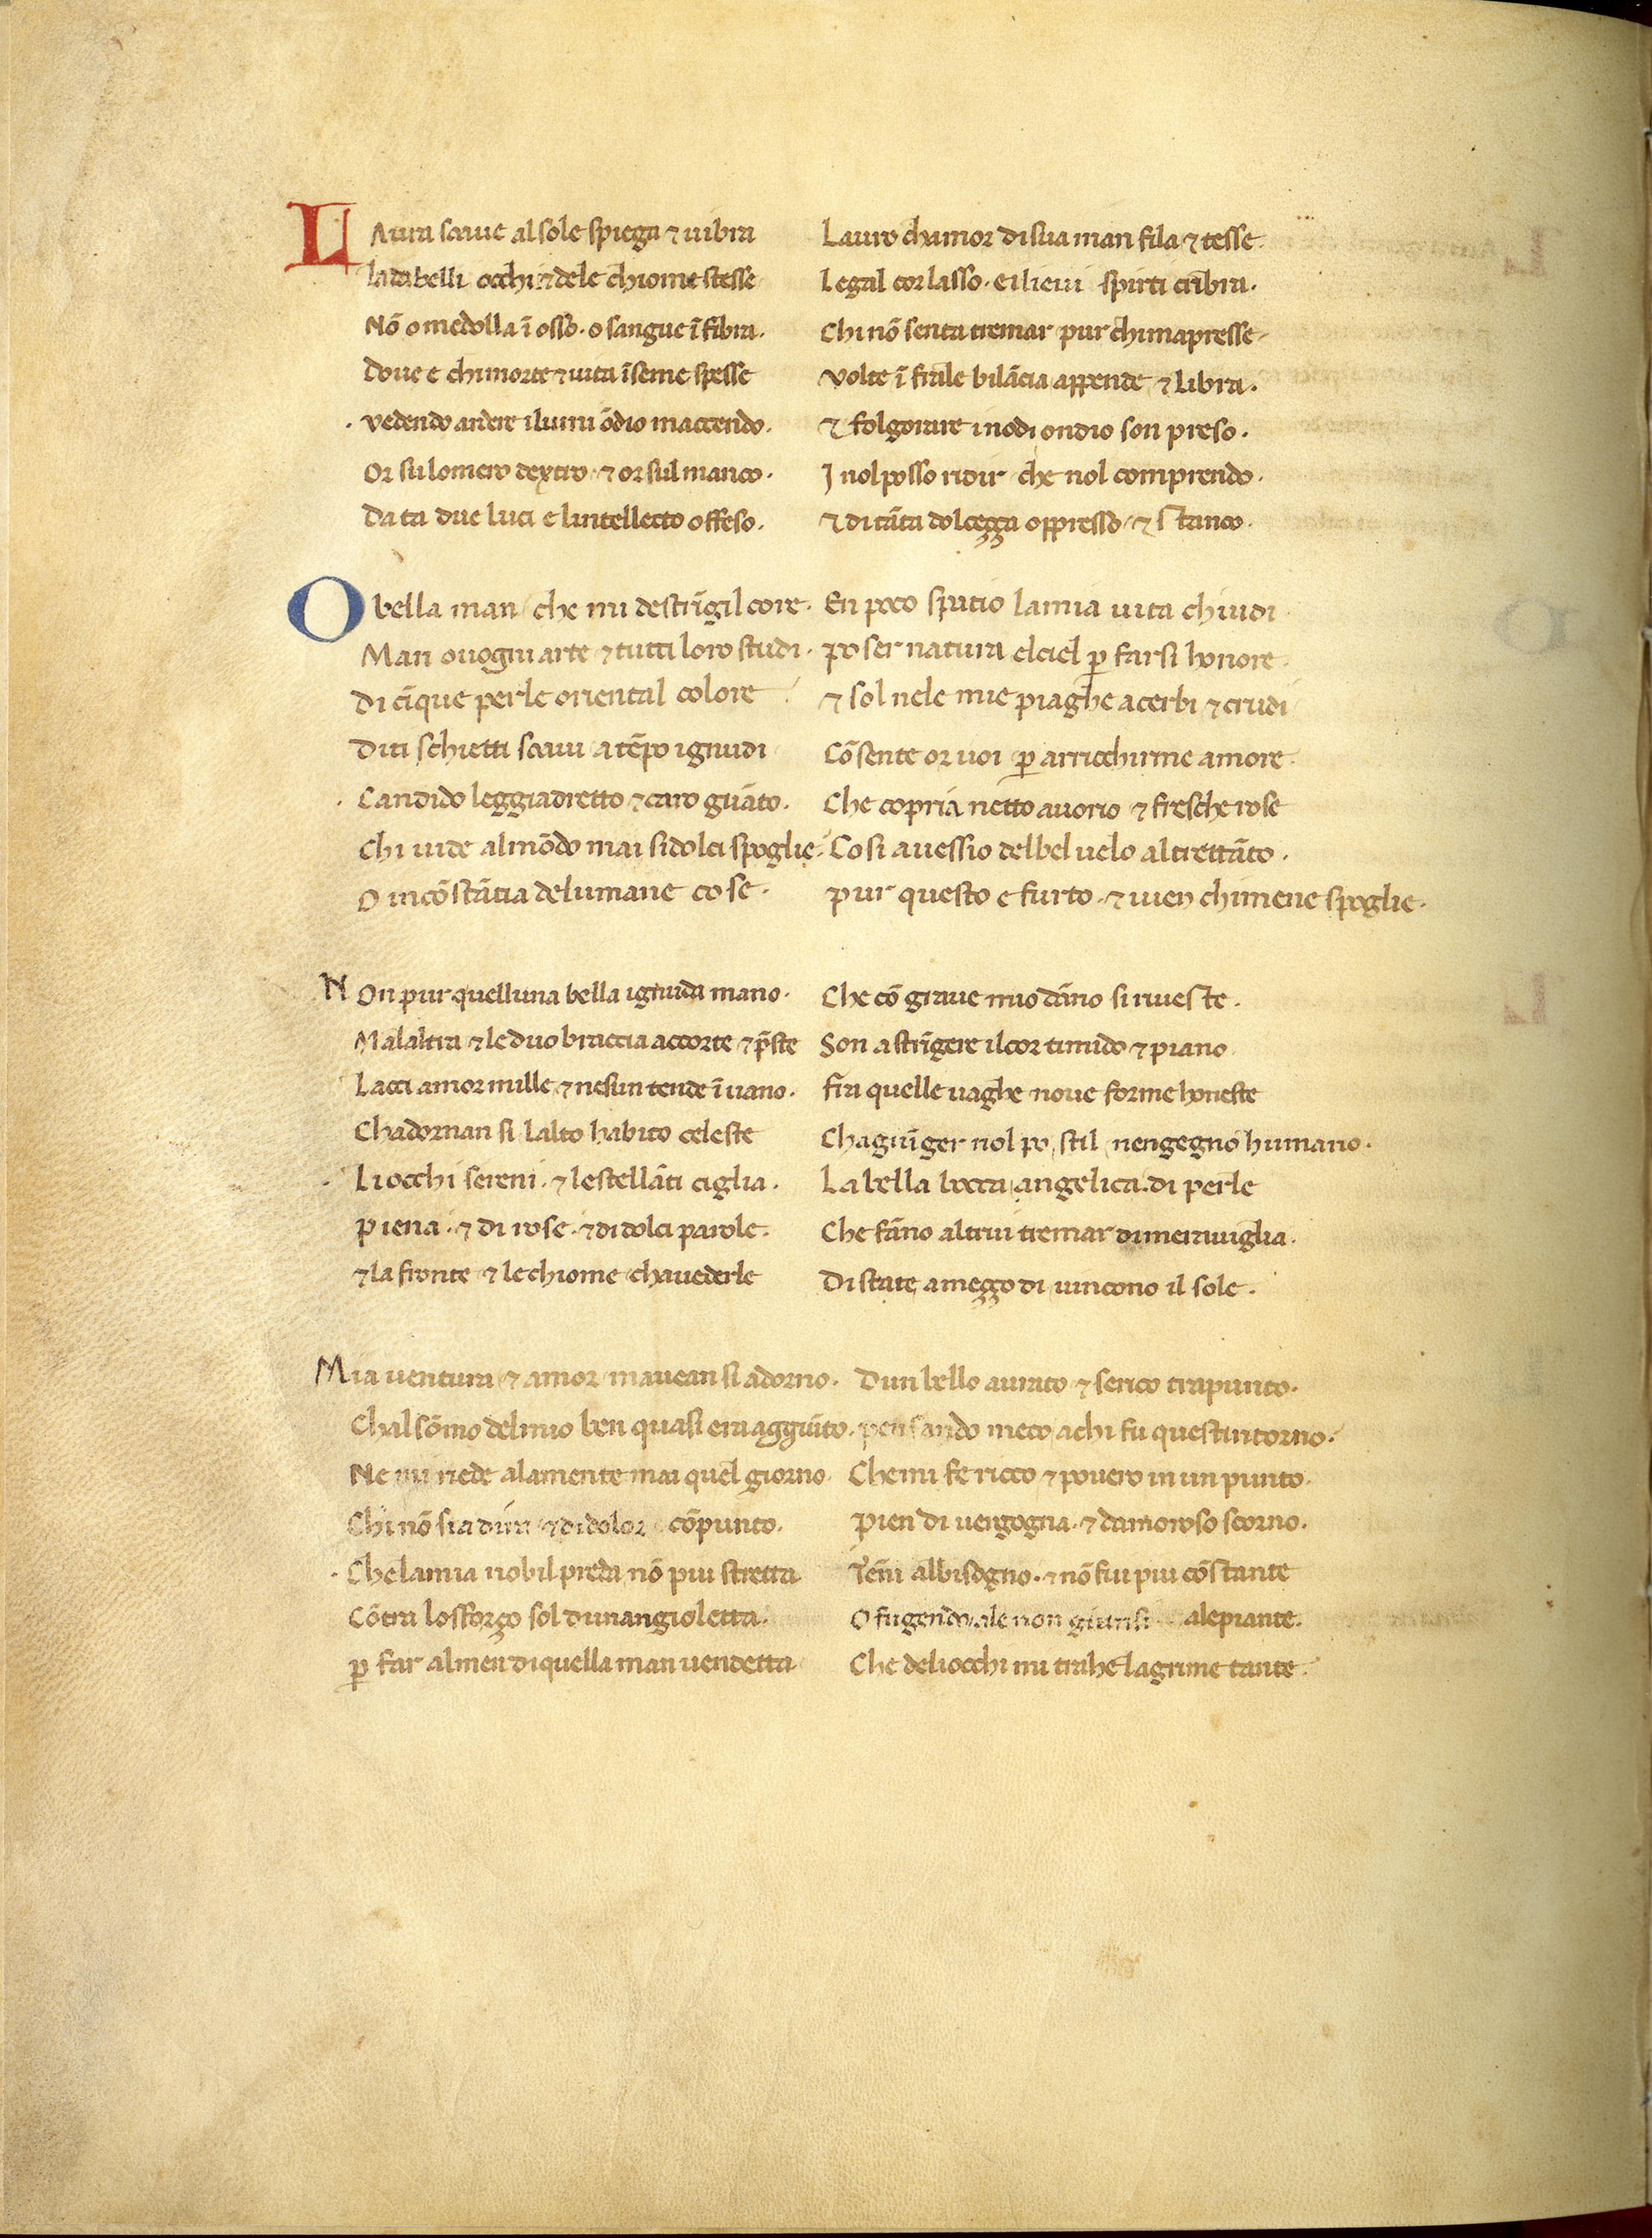 LAura soaue al sole spiega ⁊ uibra Lauro chamor di sua man fila ⁊ tesse.
La da belli occhi ⁊ dele chiome stesse Lega l cor lasso. e i lieui spirti cribra.
Nō o medolla ī osso. o sangue ī fibra. Chi nō senta tremar pur chi mapresse
Doue e chi morte ⁊ uita īseme spesse Volte ī frale bilācia appende ⁊ libra.
Vedendo ardere i lumi ōdio maccendo. ⁊ folgorare i nodi ondio son preso.
Or su lomero dextro ⁊ or sul manco. I nol posso ridir che nol comprendo.
Da ta due luci e lintellecto offeso. ⁊ di tāta dolcezza oppresso ⁊ stanco.
O bella man che mi destrīgil core. En poco spatio la mia uita chiudi
Man ouogni arte ⁊ tutti loro studi. Poser natura el ciel p̱ farsi honore.
Di cīque perle oriental colore ⁊ sol nele mie piaghe acerbi ⁊ crudi
Diti schietti soaui a tēpo ignudi Cōsente or uoi p̱ arricchirme amore.
Candido leggiadretto ⁊ caro guāto. Che copria netto auorio ⁊ fresche rose
Chi uide al mōdo mai si dolci spoglie. Cosi auessio del bel uelo altrettāto.
O incōstātia delumane cose. Pur questo e furto. ⁊ uien chi mene spoglie.
NOn pur quelluna bella ignuda mano. Che cō graue mio dāno si riueste.
Ma laltra ⁊ le duo braccia accorte ⁊ p̄ste Son a strīgere il cor timido ⁊ piano
Lacci amor mille ⁊ nesun tende ī uano. fra quelle uaghe noue forme honeste
Chadornan si lalto habito celeste Chaguīger nol po stil nengegno humano.
Li occhi sereni. ⁊ le stellāti ciglia. La bella bocca angelica. di perle
Piena. ⁊ di rose. ⁊ di dolci parole. Che fāno altrui tremar di merauiglia.
⁊ la fronte ⁊ le chiome cha uederle Di state a mezzo di uincono il sole.
Mia uentura ⁊ amor mauean si adorno. Dun bello aurato ⁊ serico trapunto.
Chal sōmo del mio ben quasi era aggiūto. pensando meco a chi fu questintorno.
Ne mi riede ala mente mai quel giorno. Che mi fe ricco ⁊ pouero in un punto.
Chi nō sia dira ⁊ di dolor cōpunto. Pien di uergogna. ⁊ damoroso scorno.
Che la mia nobil preda nō piu stretta Tēni al bisogno. ⁊ nō fui piu cōstante
Cōtra lo sforço sol dunangioletta. O fugendo ale non giunsi ale piante.
p̱ far almen di quella man uendetta Che deliocchi mi trahe lagrime tante.